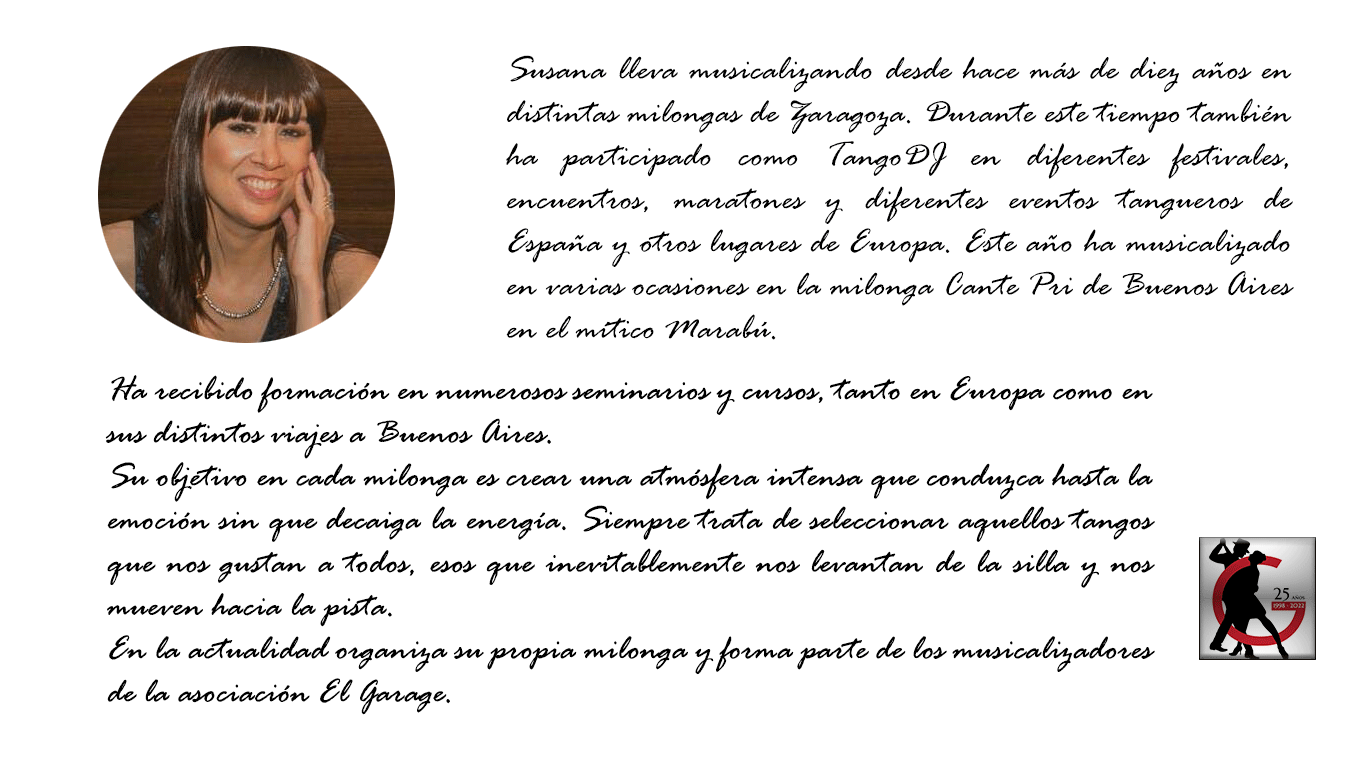 Susana lleva musicalizando desde hace más de diez años en
distintas milongas de Zaragoza. Durante este tiempo también
ha participado como TangoDJ en diferentes festivales,
encuentros, maratones y diferentes eventos tangueros de
España y otros lugares de Europa. Este año ha musicalizado
en varias ocasiones en la milonga Cante Pri de Buenos Aires
en el mítico Marabú.
Ha recibido formación en numerosos seminarios y cursos, tanto en Europa como en
sus distintos viajes a Buenos Aires.
Su objetivo en cada milonga es crear una atmósfera intensa que conduzca hasta la
emoción sin que decaiga la energía. Siempre trata de seleccionar aquellos tangos
que nos gustan a todos, esos que inevitablemente nos levantan de la silla y nos
mueven hacia la pista.
En la actualidad organiza su propia milonga y forma parte de los musicalizadores
de la asociación El Garage.
G
25 AÑOS
1998 - 2022